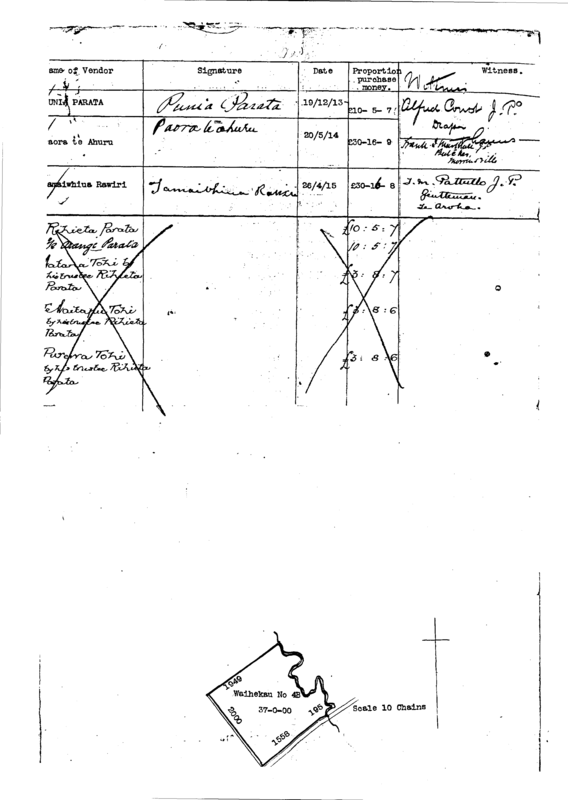 ame of Vendor Signature Date Proportion purchase money. Witness.
Witness
UNIA PARATA Punia Parata 19/12/13 £10- 5- 7 Alfred Const J.P.
Draper
aora te Ahuru Paora te ahuru 20/5/14 £30-16- 9 Frank S Marshall
Butcher
Morrinsville
amaiwhiua Rawiri Tamaiwhiua Rawiri 26/4/15 £30-16- 8 T.M. Pattullo J.P.
Gentleman.
Te Aroha.
Rihieta Parata £10 : 5 : 7
Parata 10 : 5 : 7
Tohi by £3 : 8 : 7
his trustee Rihieta
Parata
Tohi £3 : 8 : 6
by his trustee Rihieta
Parata
Tohi £3 : 8 : 6
by his trustee Rihieta
Parata
1949
Waihekau No 4B
37-0-00
2000
195
1558
Scale 10 Chains